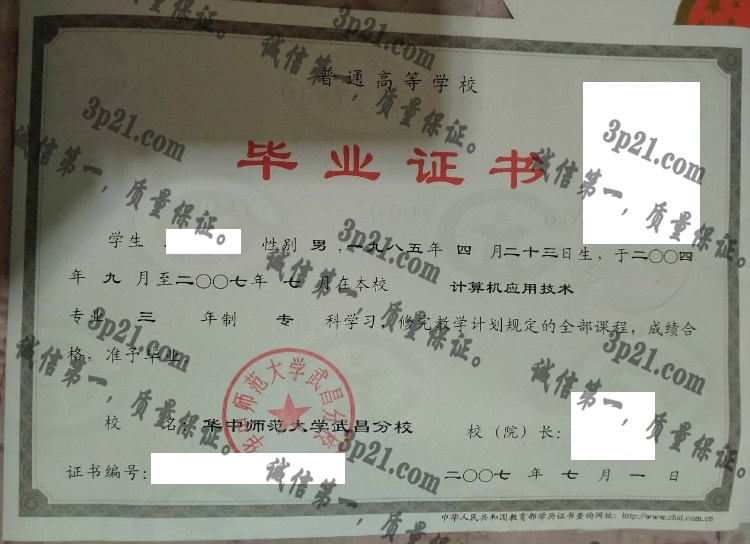 普通高等学校
毕业证书
学生 性别 男，一九八五年 四 月二十三日生，于二〇〇四
年 九 月至二〇〇七年 七 月在本校 计算机应用技术
专业 三 年制 专 科学习，修完教学计划规定的全部课程，成绩合
格，准予毕业。
华中师范大学武昌分校
校 名：华中师范大学武昌分校 校（院）长：
证书编号： 二〇〇七 年 七 月 一 日
中华人民共和国教育部学历证书查询网址：http://www.chsi.com.cn
3p21.com
诚信第一，质量保证。
3p21.com
诚信第一，质量保证。
3p21.com
诚信第一，质量保证。
3p21.com
诚信第一，质量保证。
3p21.com
诚信第一，质量保证。
3p21.com
诚信第一，质量保证。
3p21.com
诚信第一，质量保证。
诚信第一，质量保证。